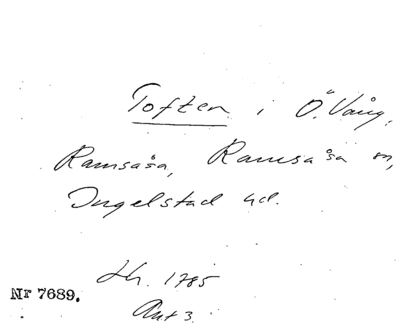 Toften i Ö. Vång,
Ramsåsa, Ramsåsa sn,
Ingelstad hd.
Lh. 1785
Akt 3.
Nr 7689.